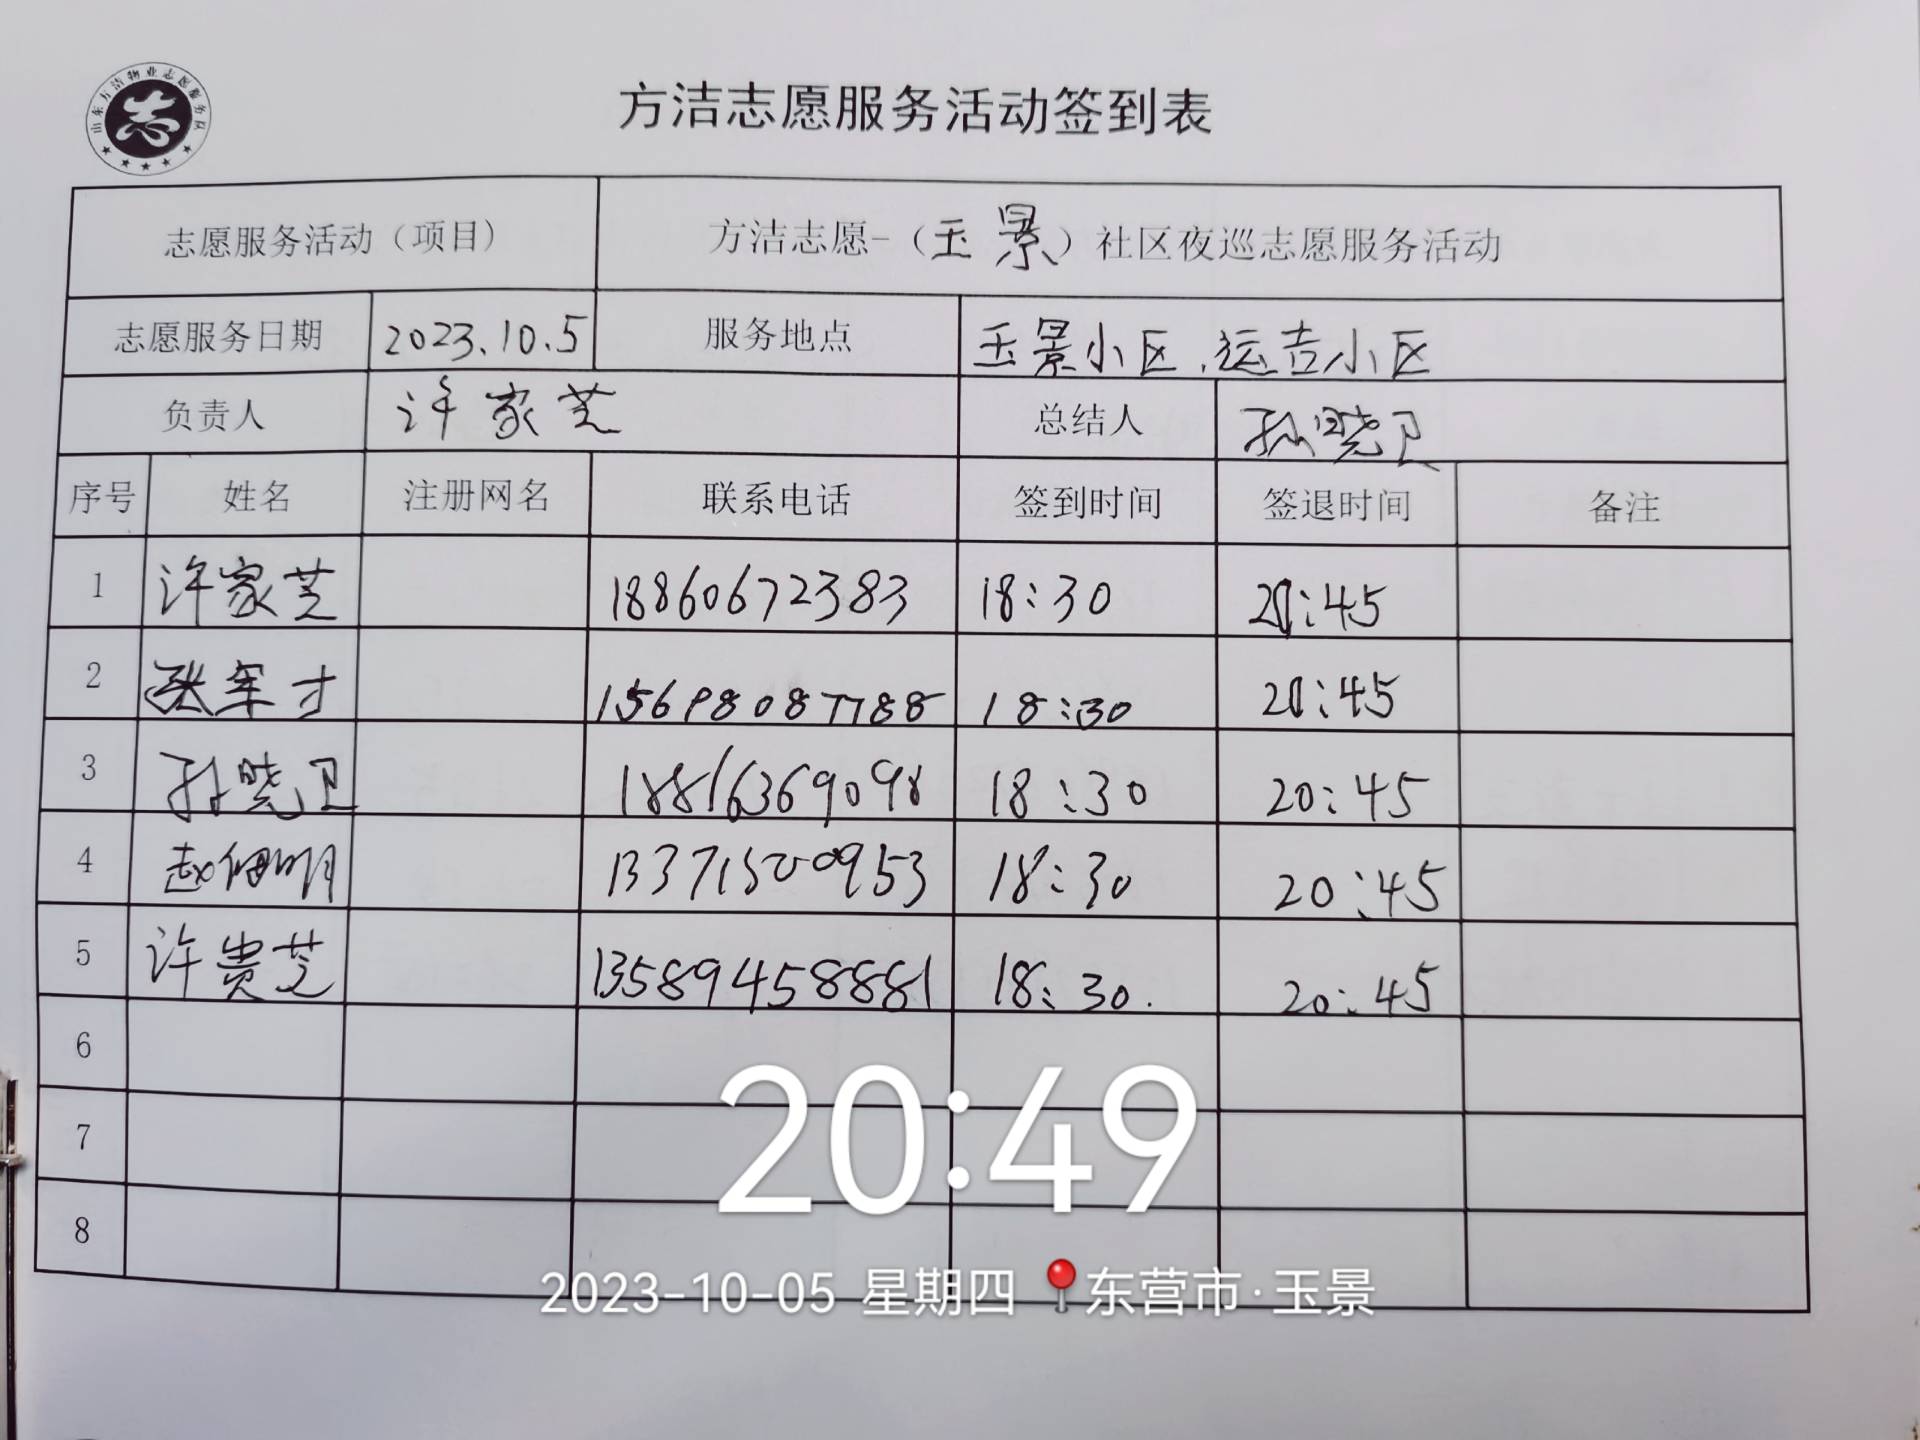 山东方洁物业志愿服务队
志
方洁志愿服务活动签到表
志愿服务活动（项目） 方洁志愿-（玉景）社区夜巡志愿服务活动
志愿服务日期 2023.10.5 服务地点 玉景小区.运吉小区
负责人 许家芝 总结人 孙晓卫
序号 姓名 注册网名 联系电话 签到时间 签退时间 备注
1 许家芝 18860672383 18:30 20:45
2 张军才 15698087788 18:30 20:45
3 孙晓卫 18816369098 18:30 20:45
4 赵明 13371500953 18:30 20:45
5 许贵芝 13589458881 18:30. 20:45
6
7
8
20:49
2023-10-05 星期四 东营市·玉景